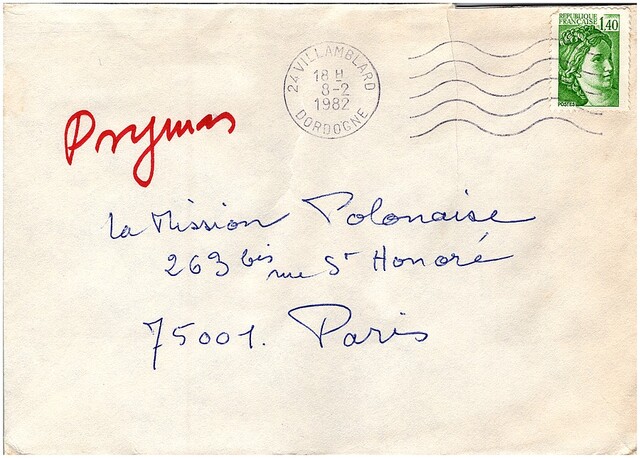 REPUBLIQUE FRANÇAISE 1,40
24 VILLAMBLARD
18 H
8-2
1982
DORDOGNE
Prymas
la Mission Polonaise
263 bis rue St Honoré
75001. Paris